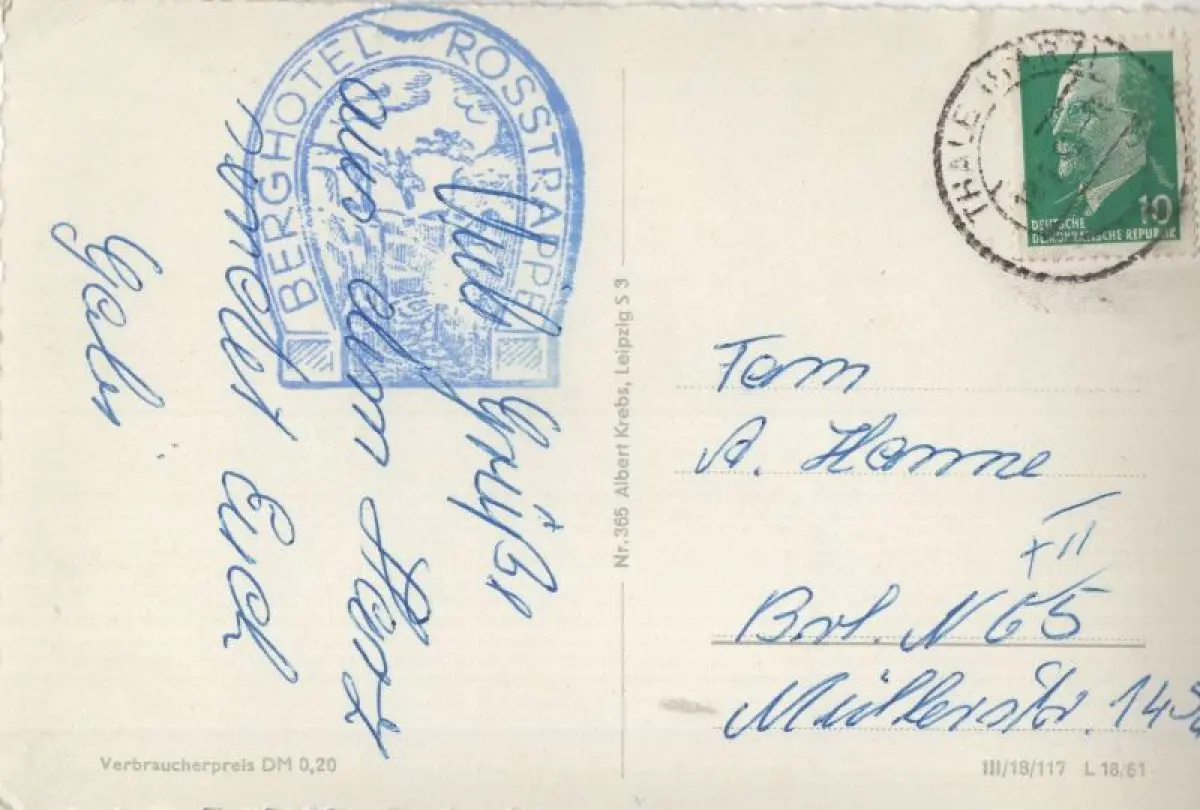 BERGHOTEL ROSSTRAPPE
Viele Grüße
aus dem Harz
sendet Euch
Gabi
Nr. 365 Albert Krebs, Leipzig S 3
THALE (HARZ)
10
DEUTSCHE
DEMOKRATISCHE REPUBLIK
Fam
A. Hanne
Brl. N 65
Müllerstr. 145
Verbraucherpreis DM 0,20
III/18/117 L 18/61